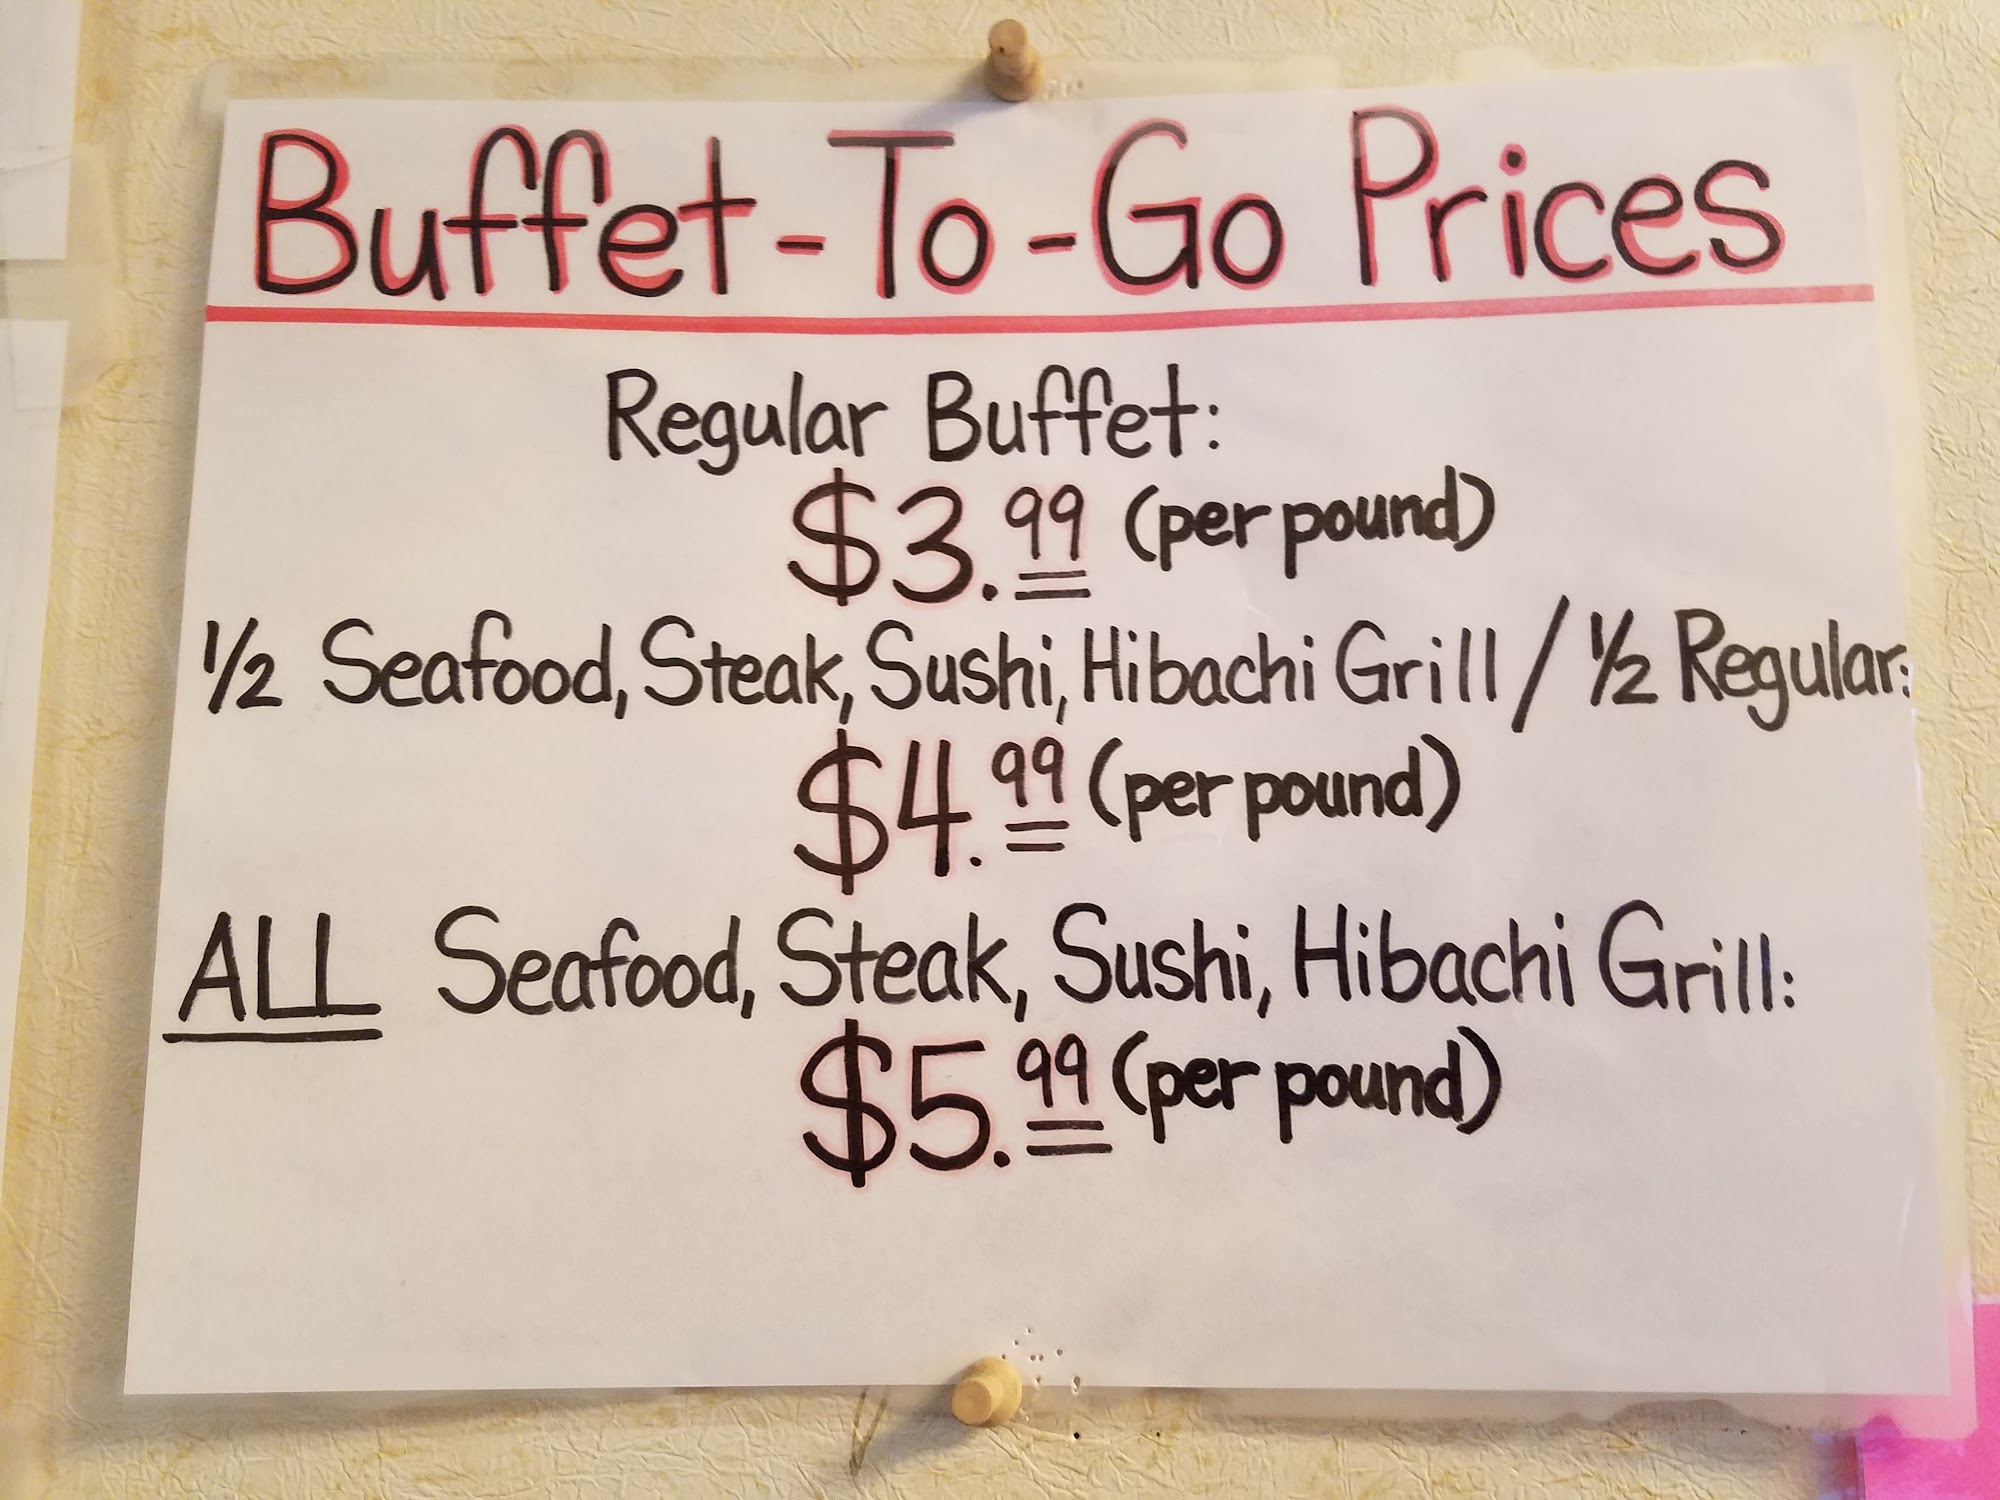 Buffet-To-Go Prices
Regular Buffet:
$3.99 (per pound)
1/2 Seafood, Steak, Sushi, Hibachi Grill / 1/2 Regular:
$4.99 (per pound)
ALL Seafood, Steak, Sushi, Hibachi Grill:
$5.99 (per pound)